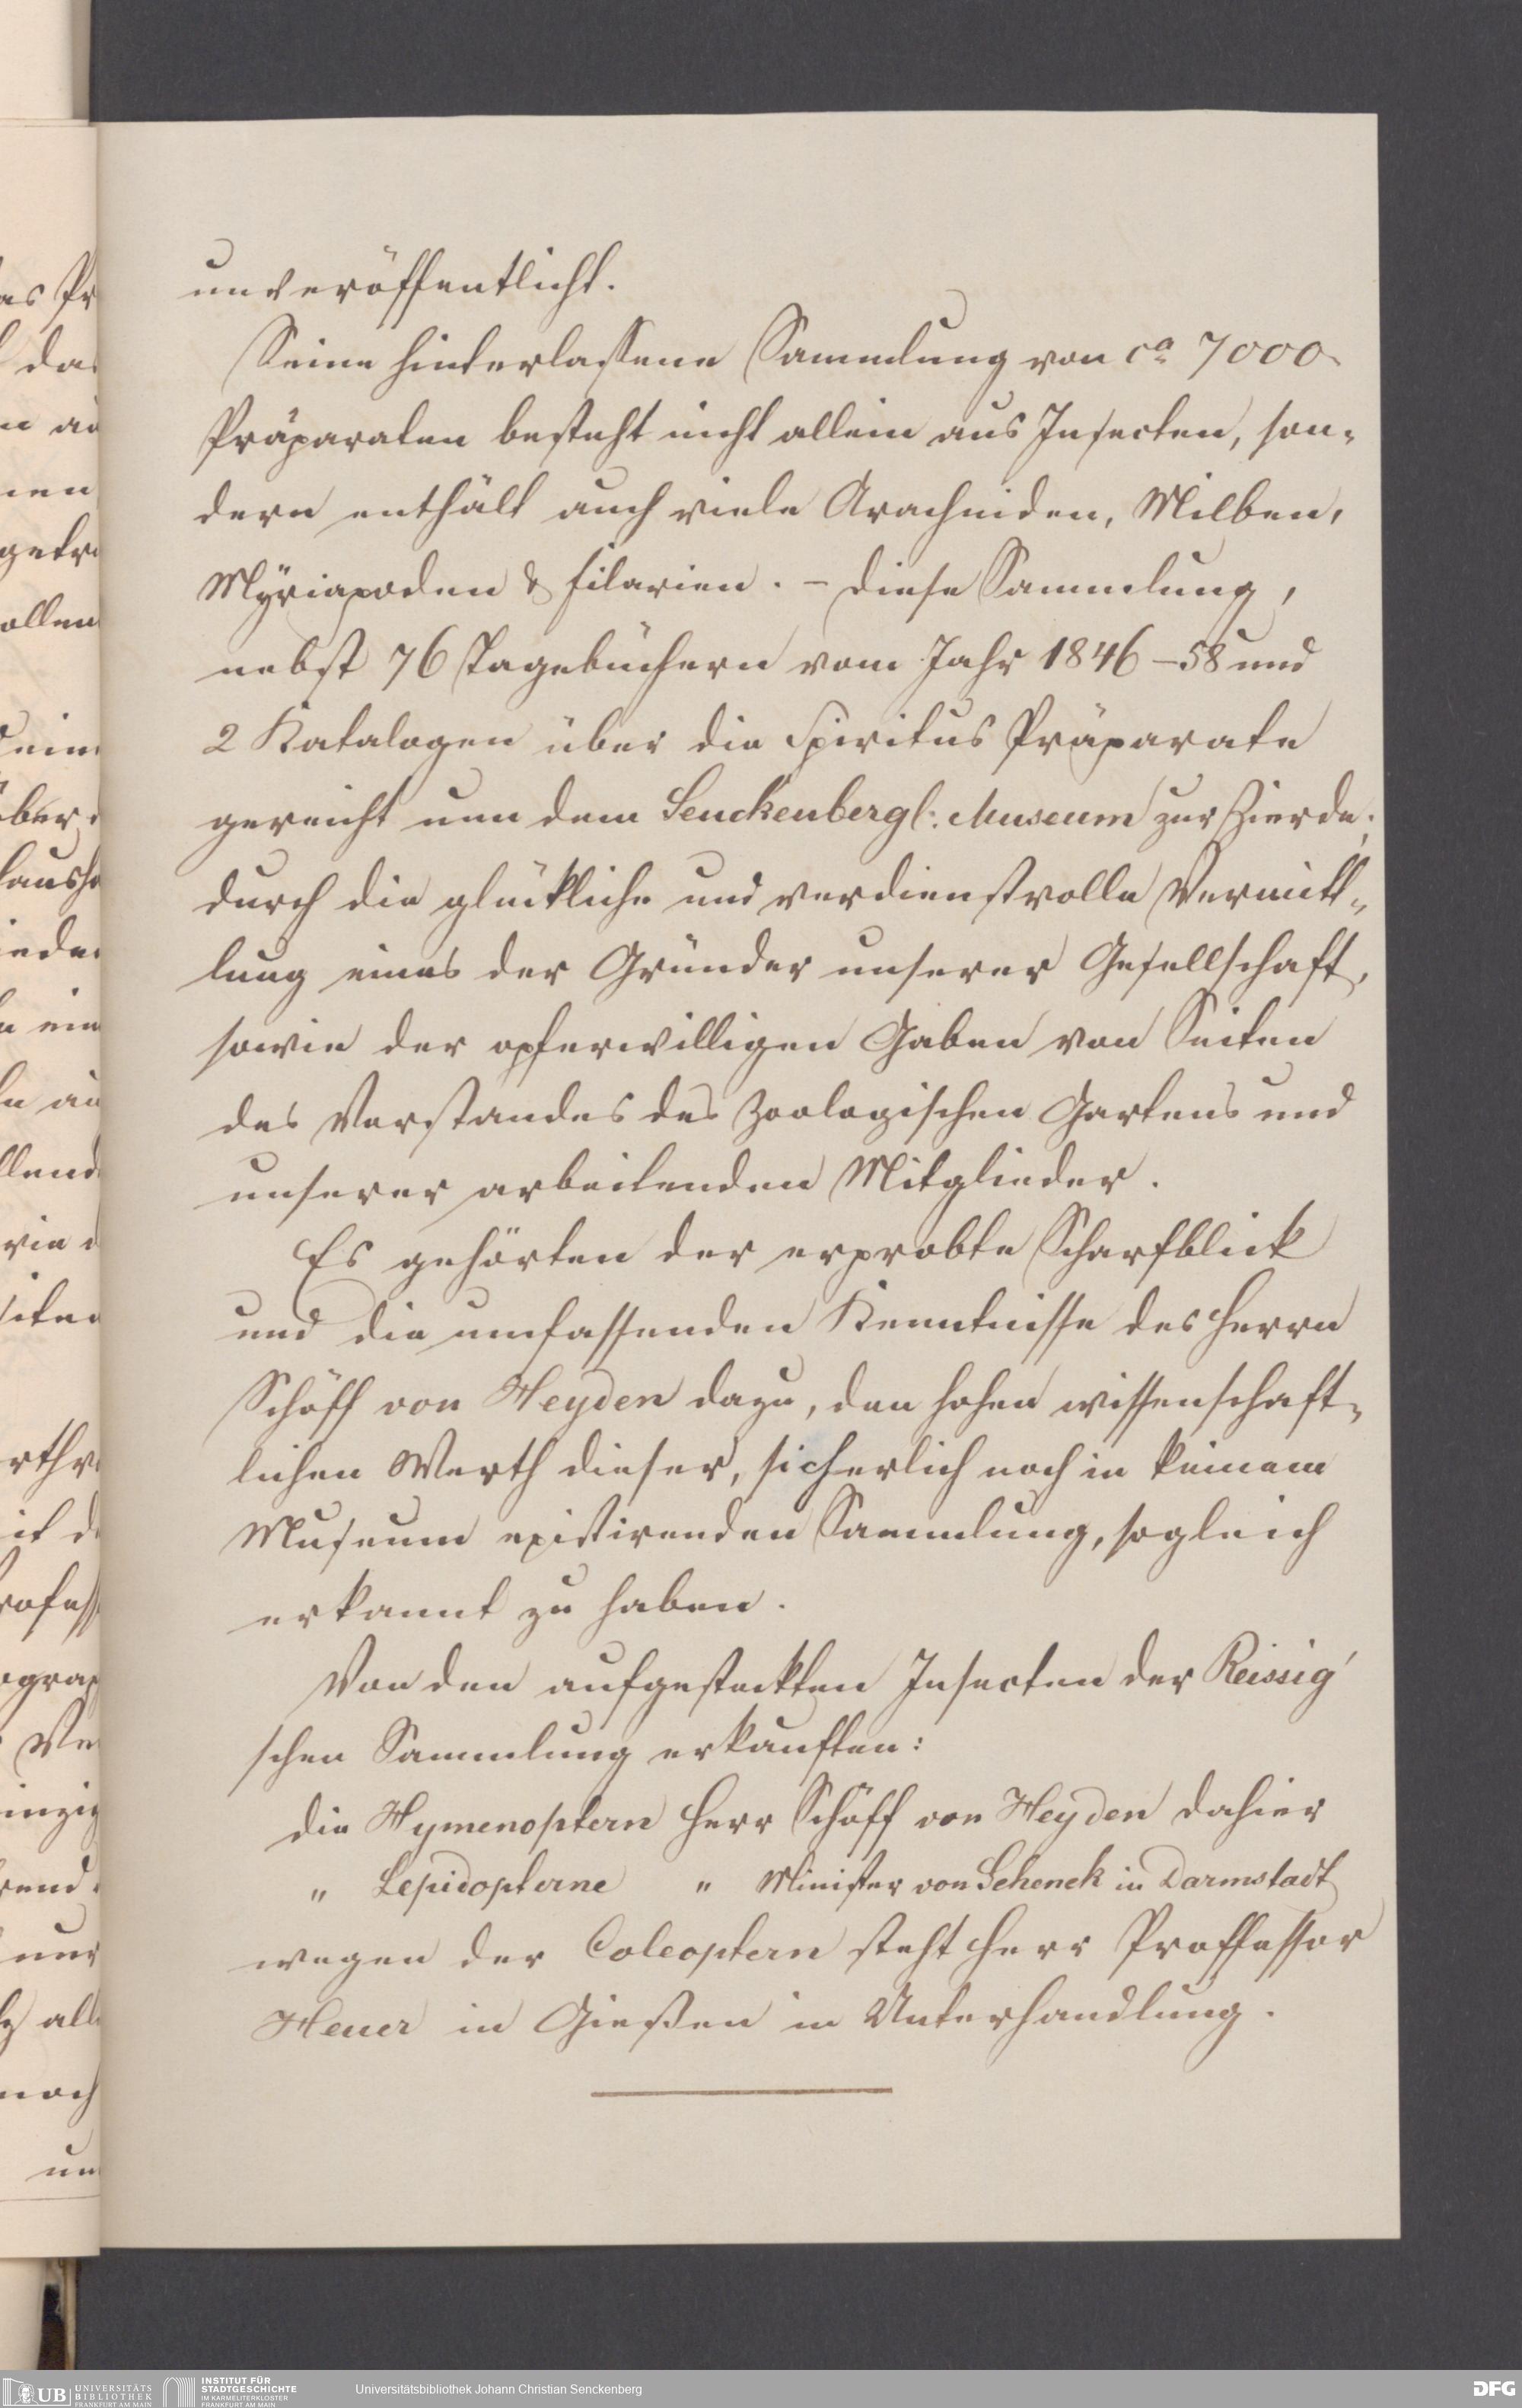 unveröffentlicht.
Seine hinterlassene Sammlung von ca 7000
Präparaten besteht nicht allein aus Insecten, son-
dern enthält auch viele Arachniden, Milben,
Mÿriapoden & Filarien. – Diese Sammlung,
nebst 76 Tagebüchern vom Jahr 1846–58 und
2 Katalogen über die Spiritus Präparate
gereicht nun dem Senckenbergl: Museum zur Zierde;
durch die glückliche und verdienstvolle Vermitt-
lung eines der Gründer unserer Gesellschaft,
sowie der opferwilligen Gaben von Seiten
des Vorstandes des zoologischen Gartens und
unserer arbeitenden Mitglieder.
Es gehörten der erprobte Scharfblick
und die umfassenden Kenntnisse des Herrn
Schöff von Heyden dazu, den hohen wissenschaft-
lichen Werth dieser, sicherlich noch in keinem
Museum existirenden Sammlung, sogleich
erkannt zu haben.
Von den aufgesteckten Insecten der Reissig'
schen Sammlung erkauften:
die Hymenoptern Herr Schöff von Heyden dahier
„ Lepidopterne " Minister von Schenck in Darmstadt
wegen der Coleoptern steht Herr Proffessor
Heuer in Gießen in Unterhandlung.
UB UNIVERSITÄTS
BIBLIOTHEK
FRANKFURT AM MAIN
INSTITUT FÜR
STADTGESCHICHTE
IM KARMELITERKLOSTER
FRANKFURT AM MAIN
Universitätsbibliothek Johann Christian Senckenberg
DFG